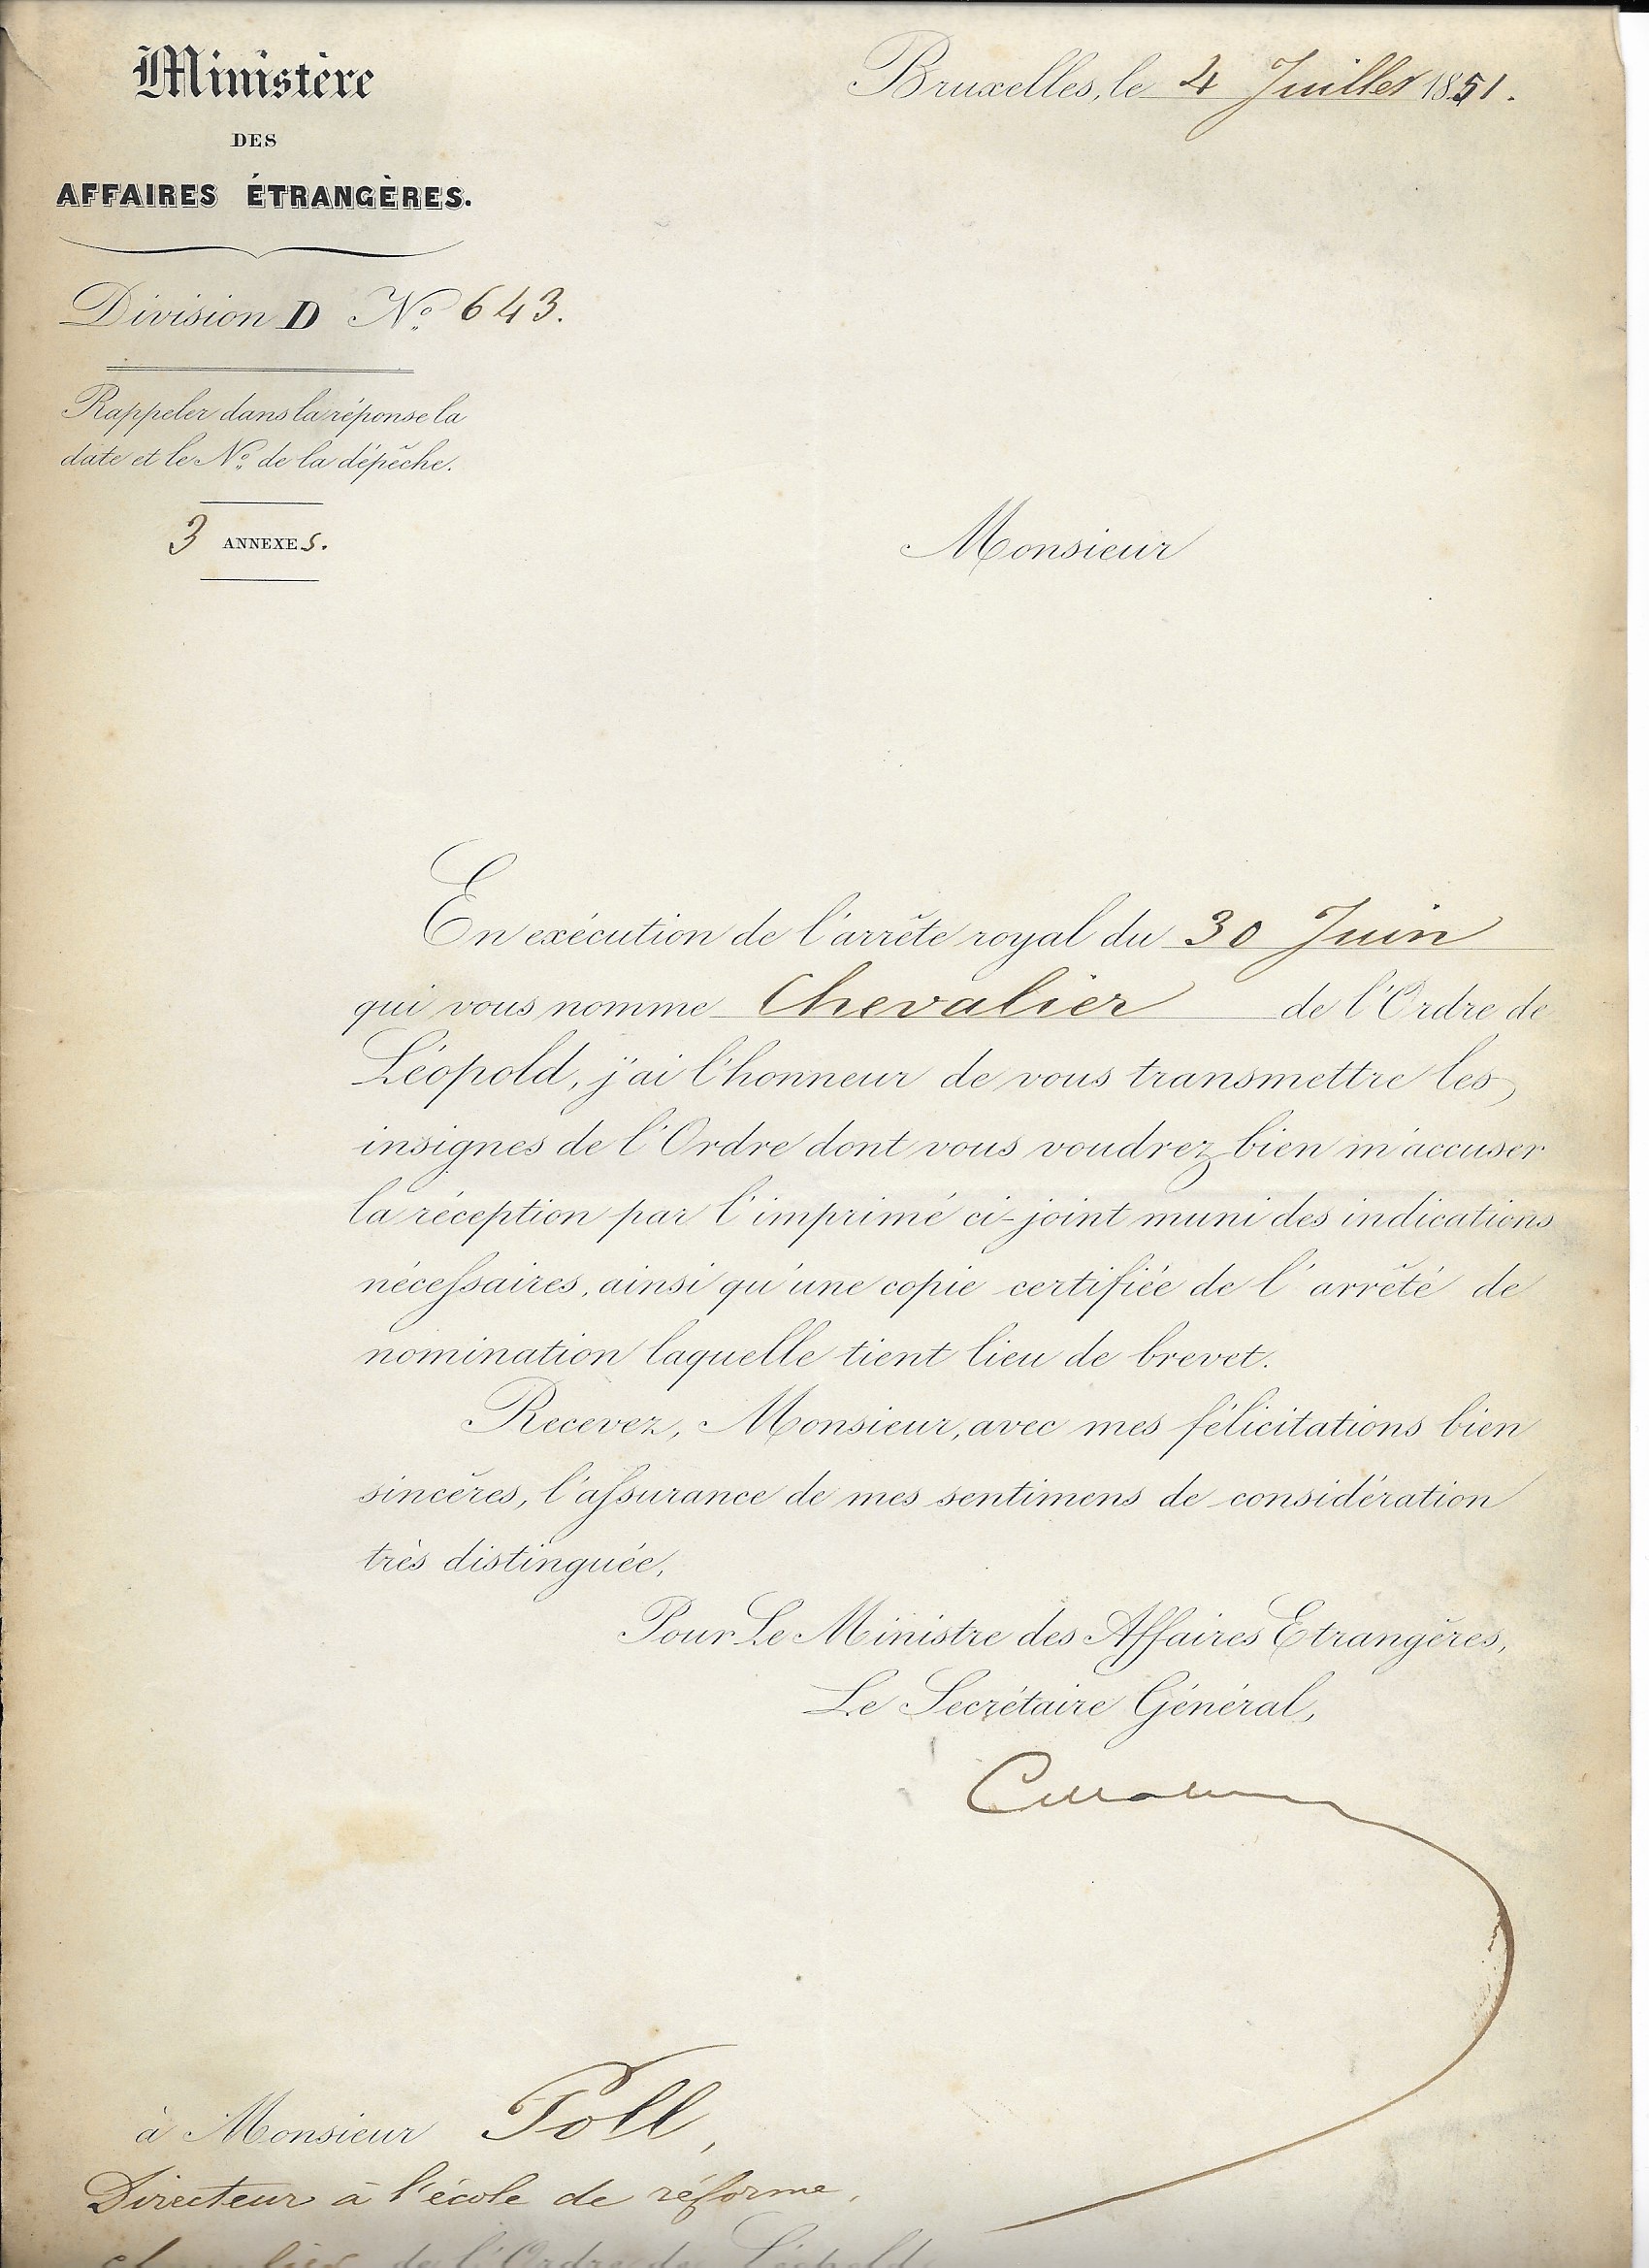 Ministère
DES
AFFAIRES ÉTRANGÈRES.
Division D Nº 643.
Rappeler dans la réponse la
date et le Nº de la dépêche.
3 ANNEXES.
Bruxelles, le 4 Juillet 1851.
Monsieur
En exécution de l'arrêté royal du 30 Juin
qui vous nomme Chevalier de l'Ordre de
Léopold, j'ai l'honneur de vous transmettre les
insignes de l'Ordre dont vous voudrez bien m'accuser
la réception par l'imprimé ci-joint muni des indications
nécessaires, ainsi qu'une copie certifiée de l'arrêté de
nomination laquelle tient lieu de brevet.
Recevez, Monsieur, avec mes félicitations bien
sincères, l'assurance de mes sentimens de considération
très distinguée,
Pour Le Ministre des Affaires Etrangères,
Le Secrétaire Général,
à Monsieur Poll,
Directeur à l'école de réforme,
chevalier de l'Ordre de Léopold